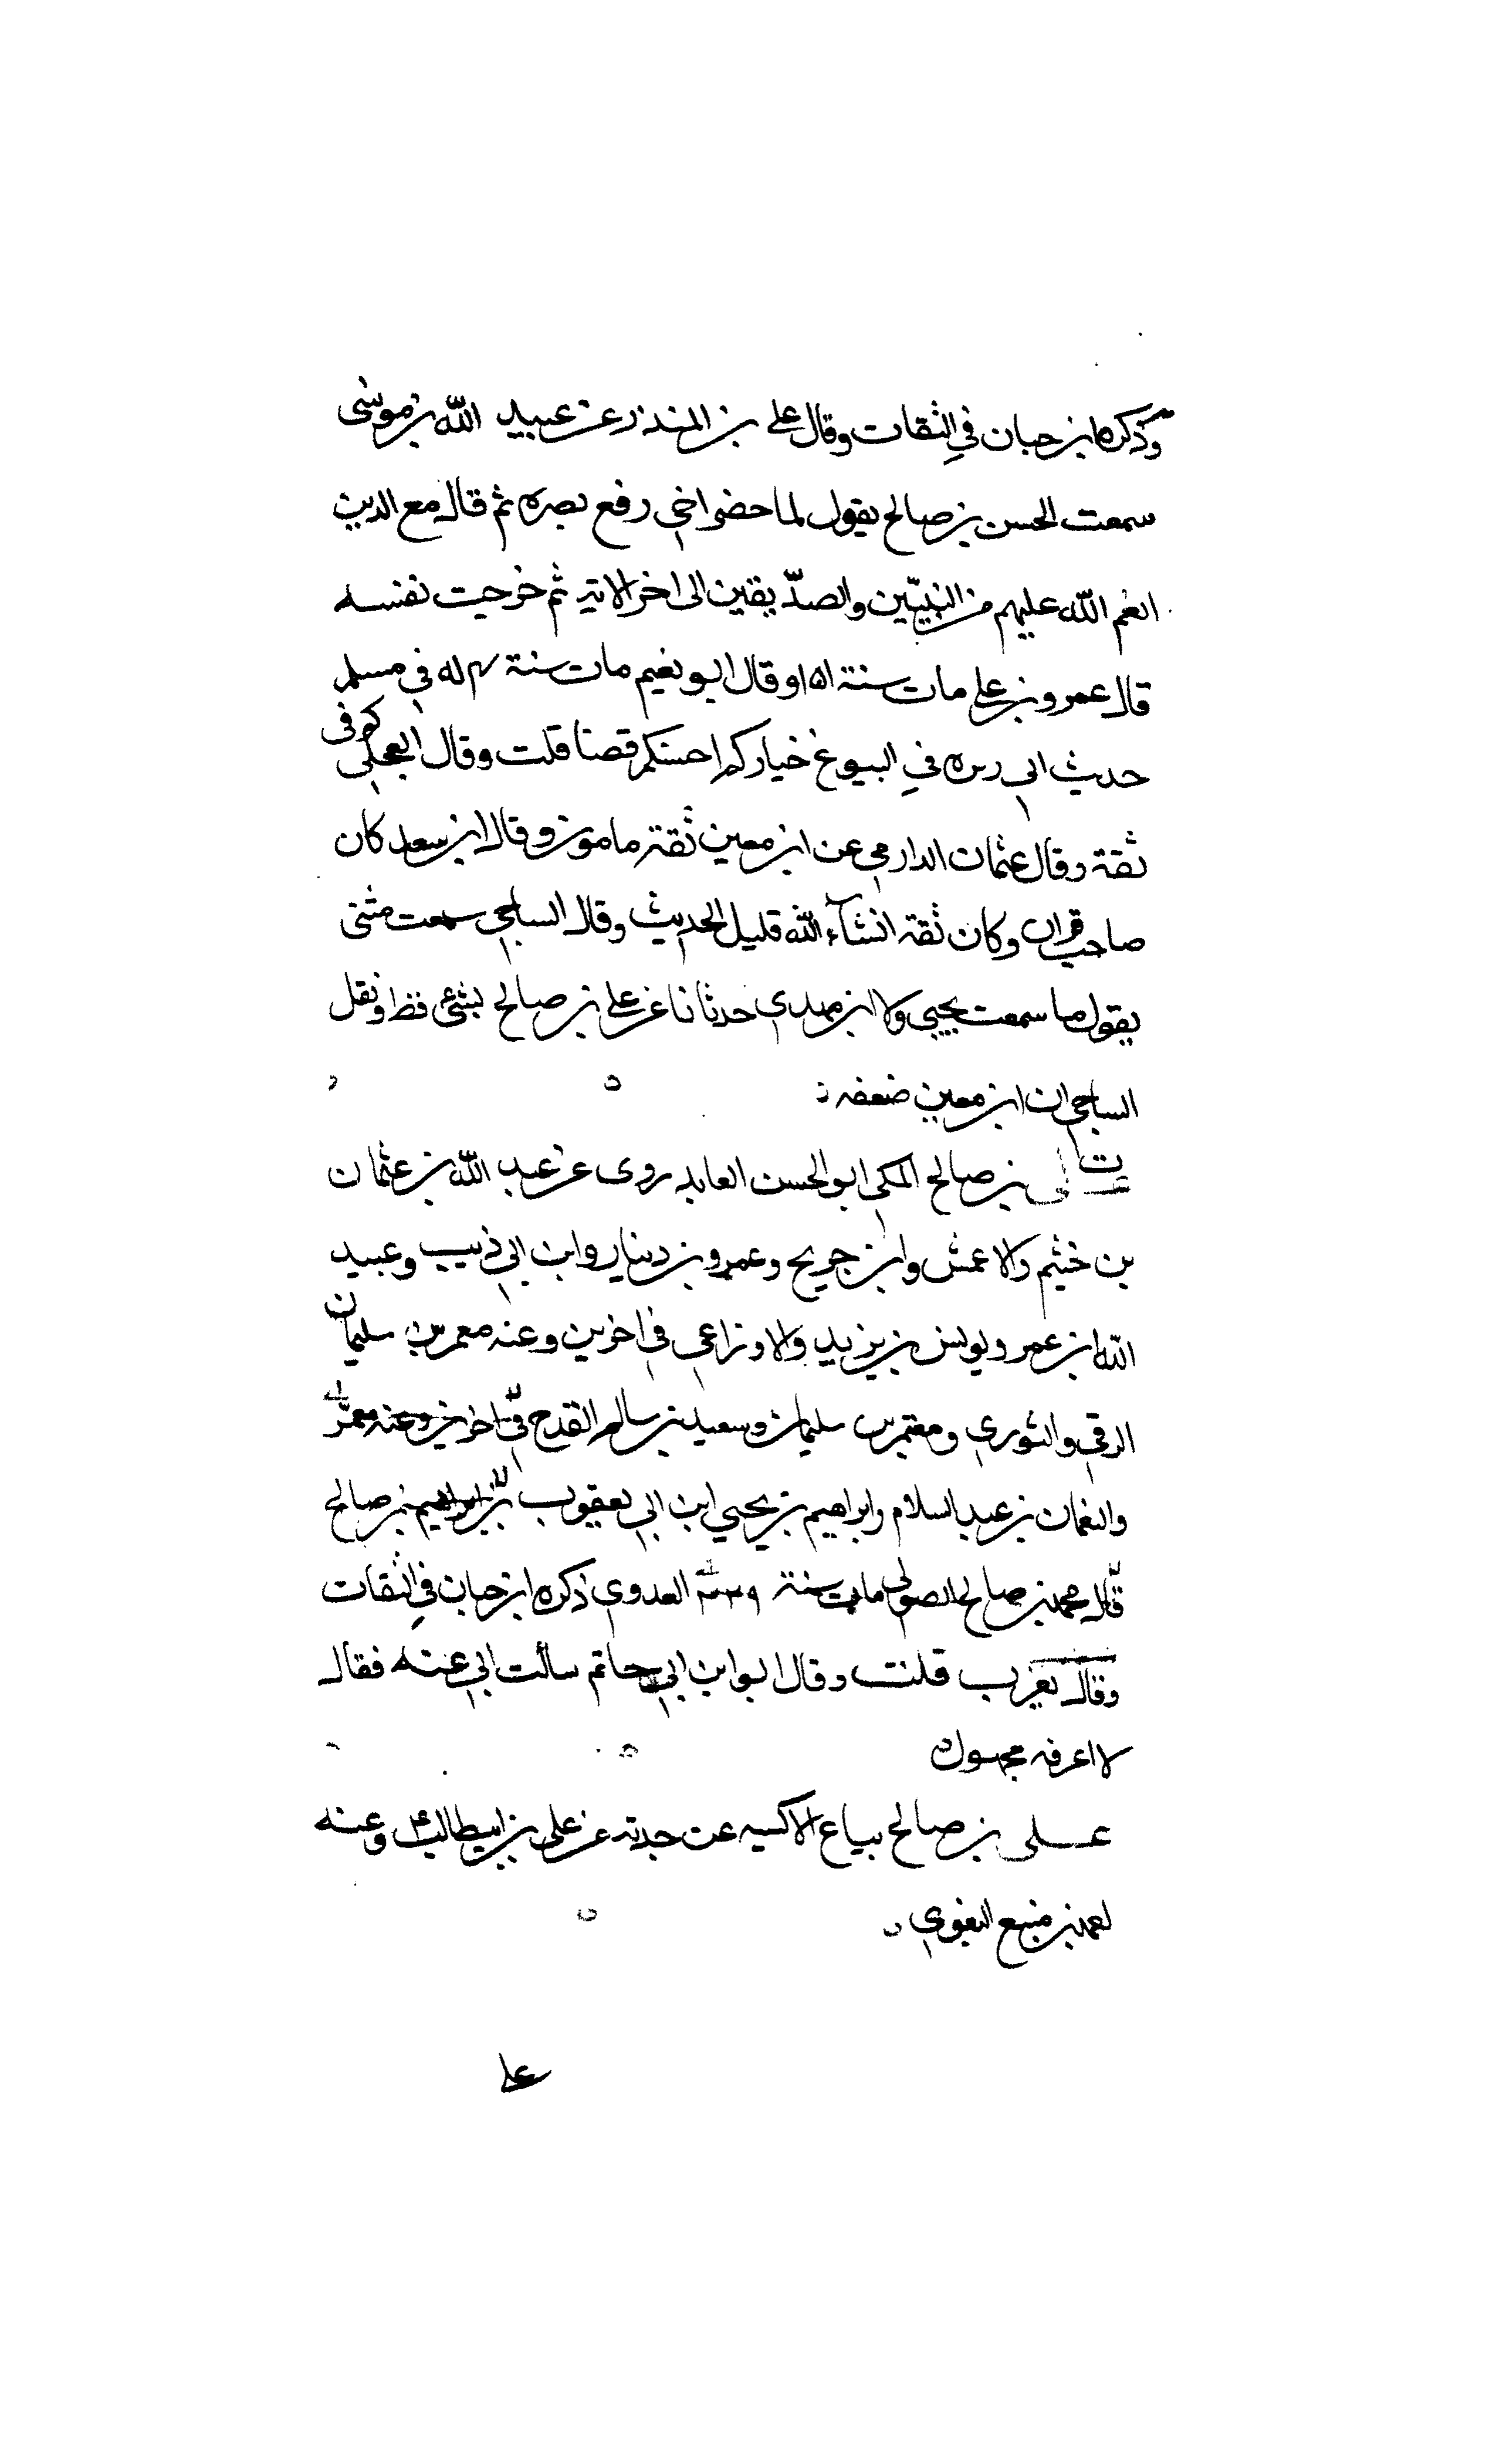 وذكره ابن حبان في الثقات وقال علي بن المنذر عن عبيد الله بن موسى
سمعت الحسن بن صالح يقول لما حضر اخي رفع بصره ثم قال مع الذين
انعم الله عليهم من النبيّين والصدّيقين الى اخر الاية ثم خرجت نفسه
قال عمرو بن علي مات سنة ١٥١ وقال ابو نعيم مات سنة ٤ له في مسلم
حديث ابي ريره في البيوع خياركم احسنكم قضا قلت وقال العجلي كوفى
ثقة وقال عثمان الدارمي عن ابن معين ثقة مامون وقال ابن سعد كان
صاحب قران وكان ثقة انشآء الله قليل الحديث وقال الساجي سمعت مثنى
يقول ما سمعت يحيى ولا ابن مهدي حدثانا عن علي بن صالح بشئ قط ونقل
الساجي ان ابن معين ضعفه
ت علي بن صالح المكي ابو الحسن العابد روى عن عبد الله بن عثمان
بن خثيم والاعمش وابن جريج وعمرو بن دينار وابن ابي ذيب وعبيد
الله ابن عمر ويونس بن يزيد والاوزاعي في اخرين وعنه معمر بن سليمان
الرقي والثوري ومعتمر بن سليمان وسعيد بن سالم القدح في اخرين وعنه معمر
والنعمان بن عبد السلام وابراهيم بن يحيى ابن ابي يعقوب بن ابراهيم بن صالح
قال محمد بن صالح الصولي مات سنة ٢٣٩ العدوي ذكره ابن حبان في الثقات
وقال يغرب قلت وقال ابو ابن ابي حاتم سألت ابي عنه فقال
لا اعرفه مجهول
علي بن صالح بياع الاكسيه عن جدته عن علي بن ابيطالب وعنه
احمد بن منيع البغوي
علي